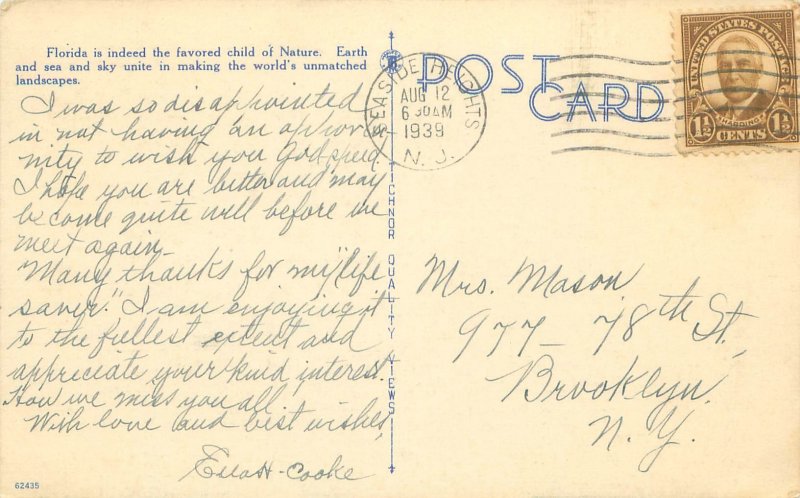 Florida is indeed the favored child of Nature. Earth
and sea and sky unite in making the world's unmatched
landscapes.
I was so disappointed
in not having an opportu
nity to wish you God-speed.
I hope you are better and may
become quite well before we
meet again.
Many thanks for my "life
saver." I am enjoying it
to the fullest extent and
appreciate your kind interest.
How we miss you all.
With love and best wishes,
Cooke
62435
TICHNOR QUALITY VIEWS
POST
CARD
SEASIDE HEIGHTS
AUG 12
6 30AM
1939
N. J.
UNITED STATES POSTAGE
HARDING
1½ CENTS 1½
Mrs. Mason
977 - 78th St,
Brooklyn,
N. Y.